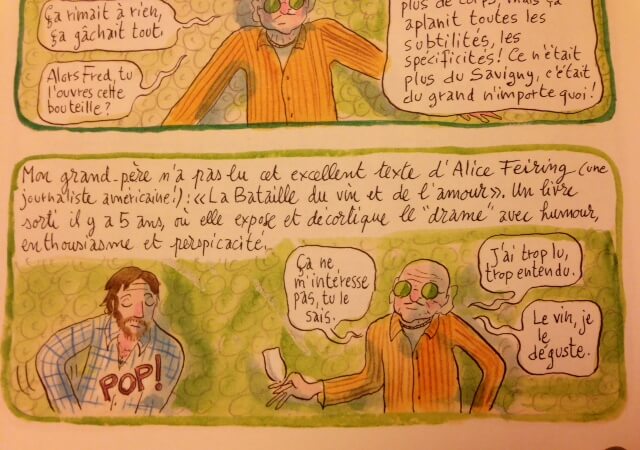 Ça rimait à rien,
ça gâchait tout.
Alors Fred, tu
l'ouvres cette
bouteille?
plus de corps, mais ça
aplanit toutes les
subtilités, les
spécificités! Ce n'était
plus du Savigny, c'était
du grand n'importe quoi!
Mon grand-père n'a pas lu cet excellent texte d'Alice Feiring (une
journaliste américaine!): «La Bataille du vin et de l'amour». Un livre
sorti il y a 5 ans, où elle expose et décortique le "drame" avec humour,
enthousiasme et perspicacité.
POP!
Ça ne
m'intéresse
pas, tu le
sais.
J'ai trop lu,
trop entendu.
Le vin, je
le
déguste.